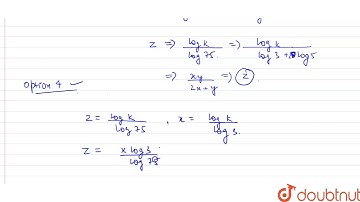 z ⇒ log k / log 75 ⇒ log k / log 3 + 2 log 5
⇒ xy / 2x + y ⇒ z
Option 4 ✓
z = log k / log 75 , x = log k / log 3
z = x log 3 / log 75
doubtnut